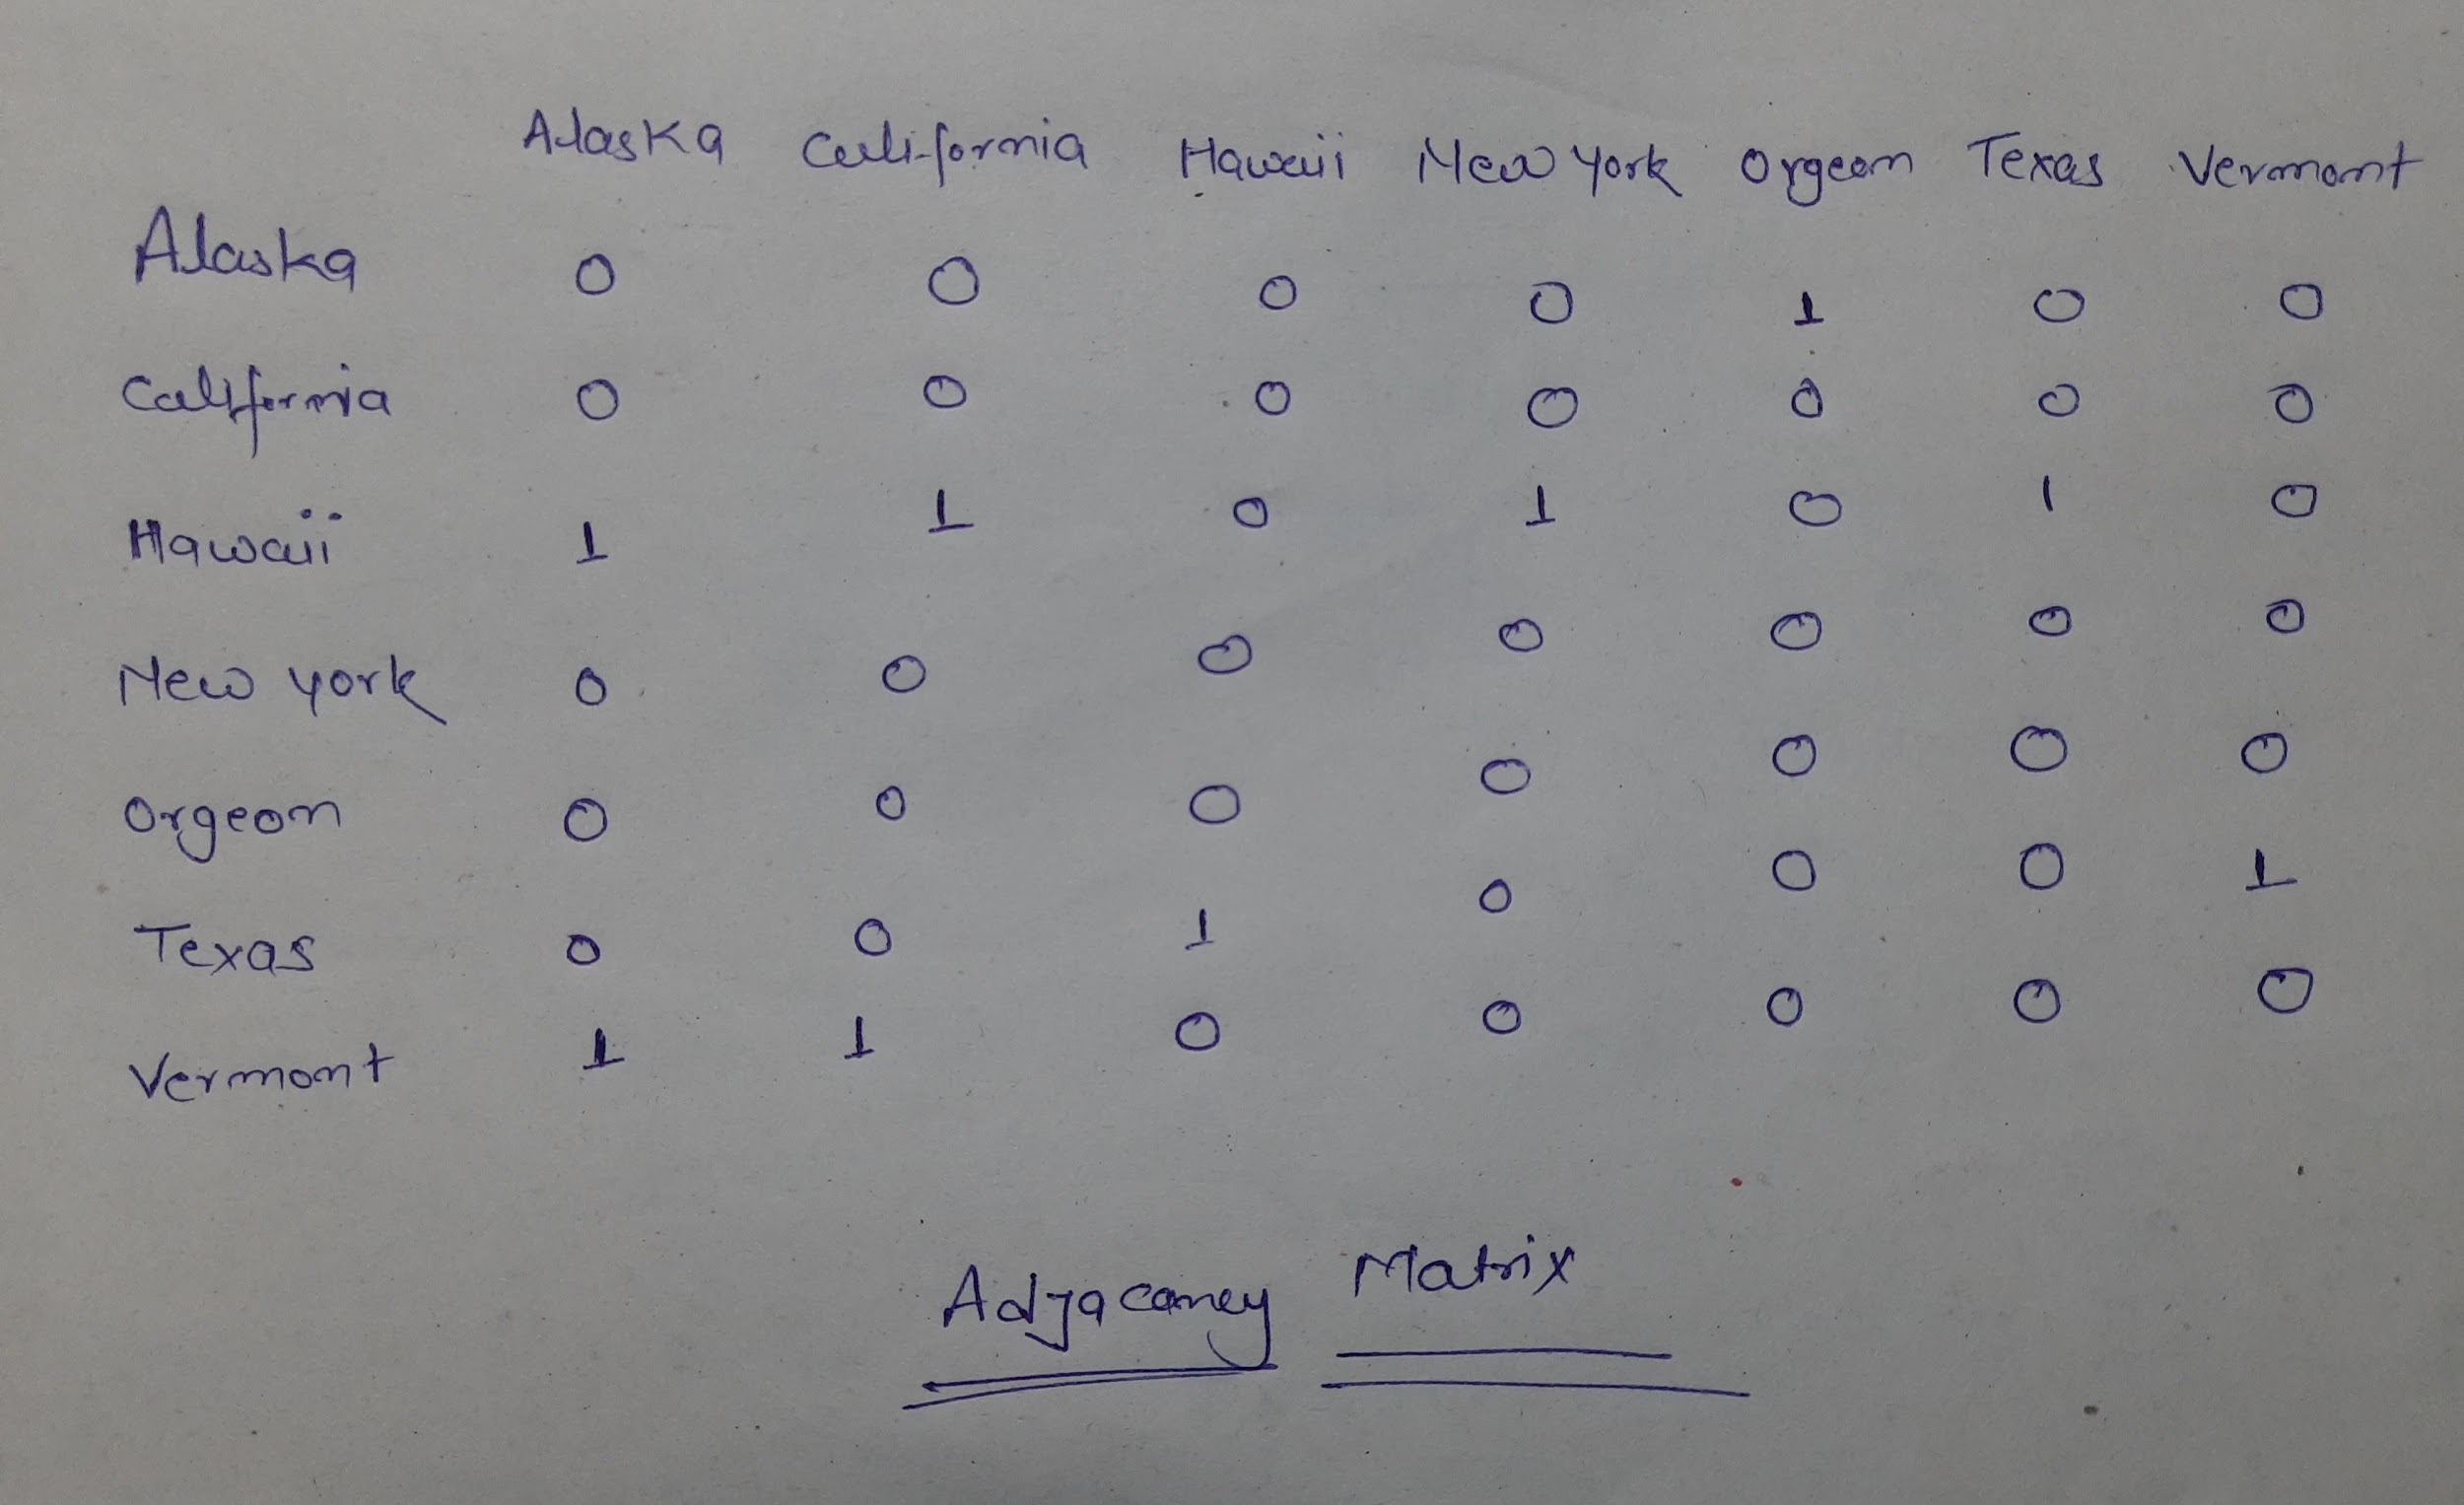 Alaska California Hawaii New York Orgeon Texas Vermont
Alaska 0 0 0 0 1 0 0
California 0 0 0 0 0 0 0
Hawaii 1 1 0 1 0 1 0
New York 0 0 0 0 0 0 0
Orgeon 0 0 0 0 0 0 0
Texas 0 0 1 0 0 0 1
Vermont 1 1 0 0 0 0 0
Adjacancy Matrix